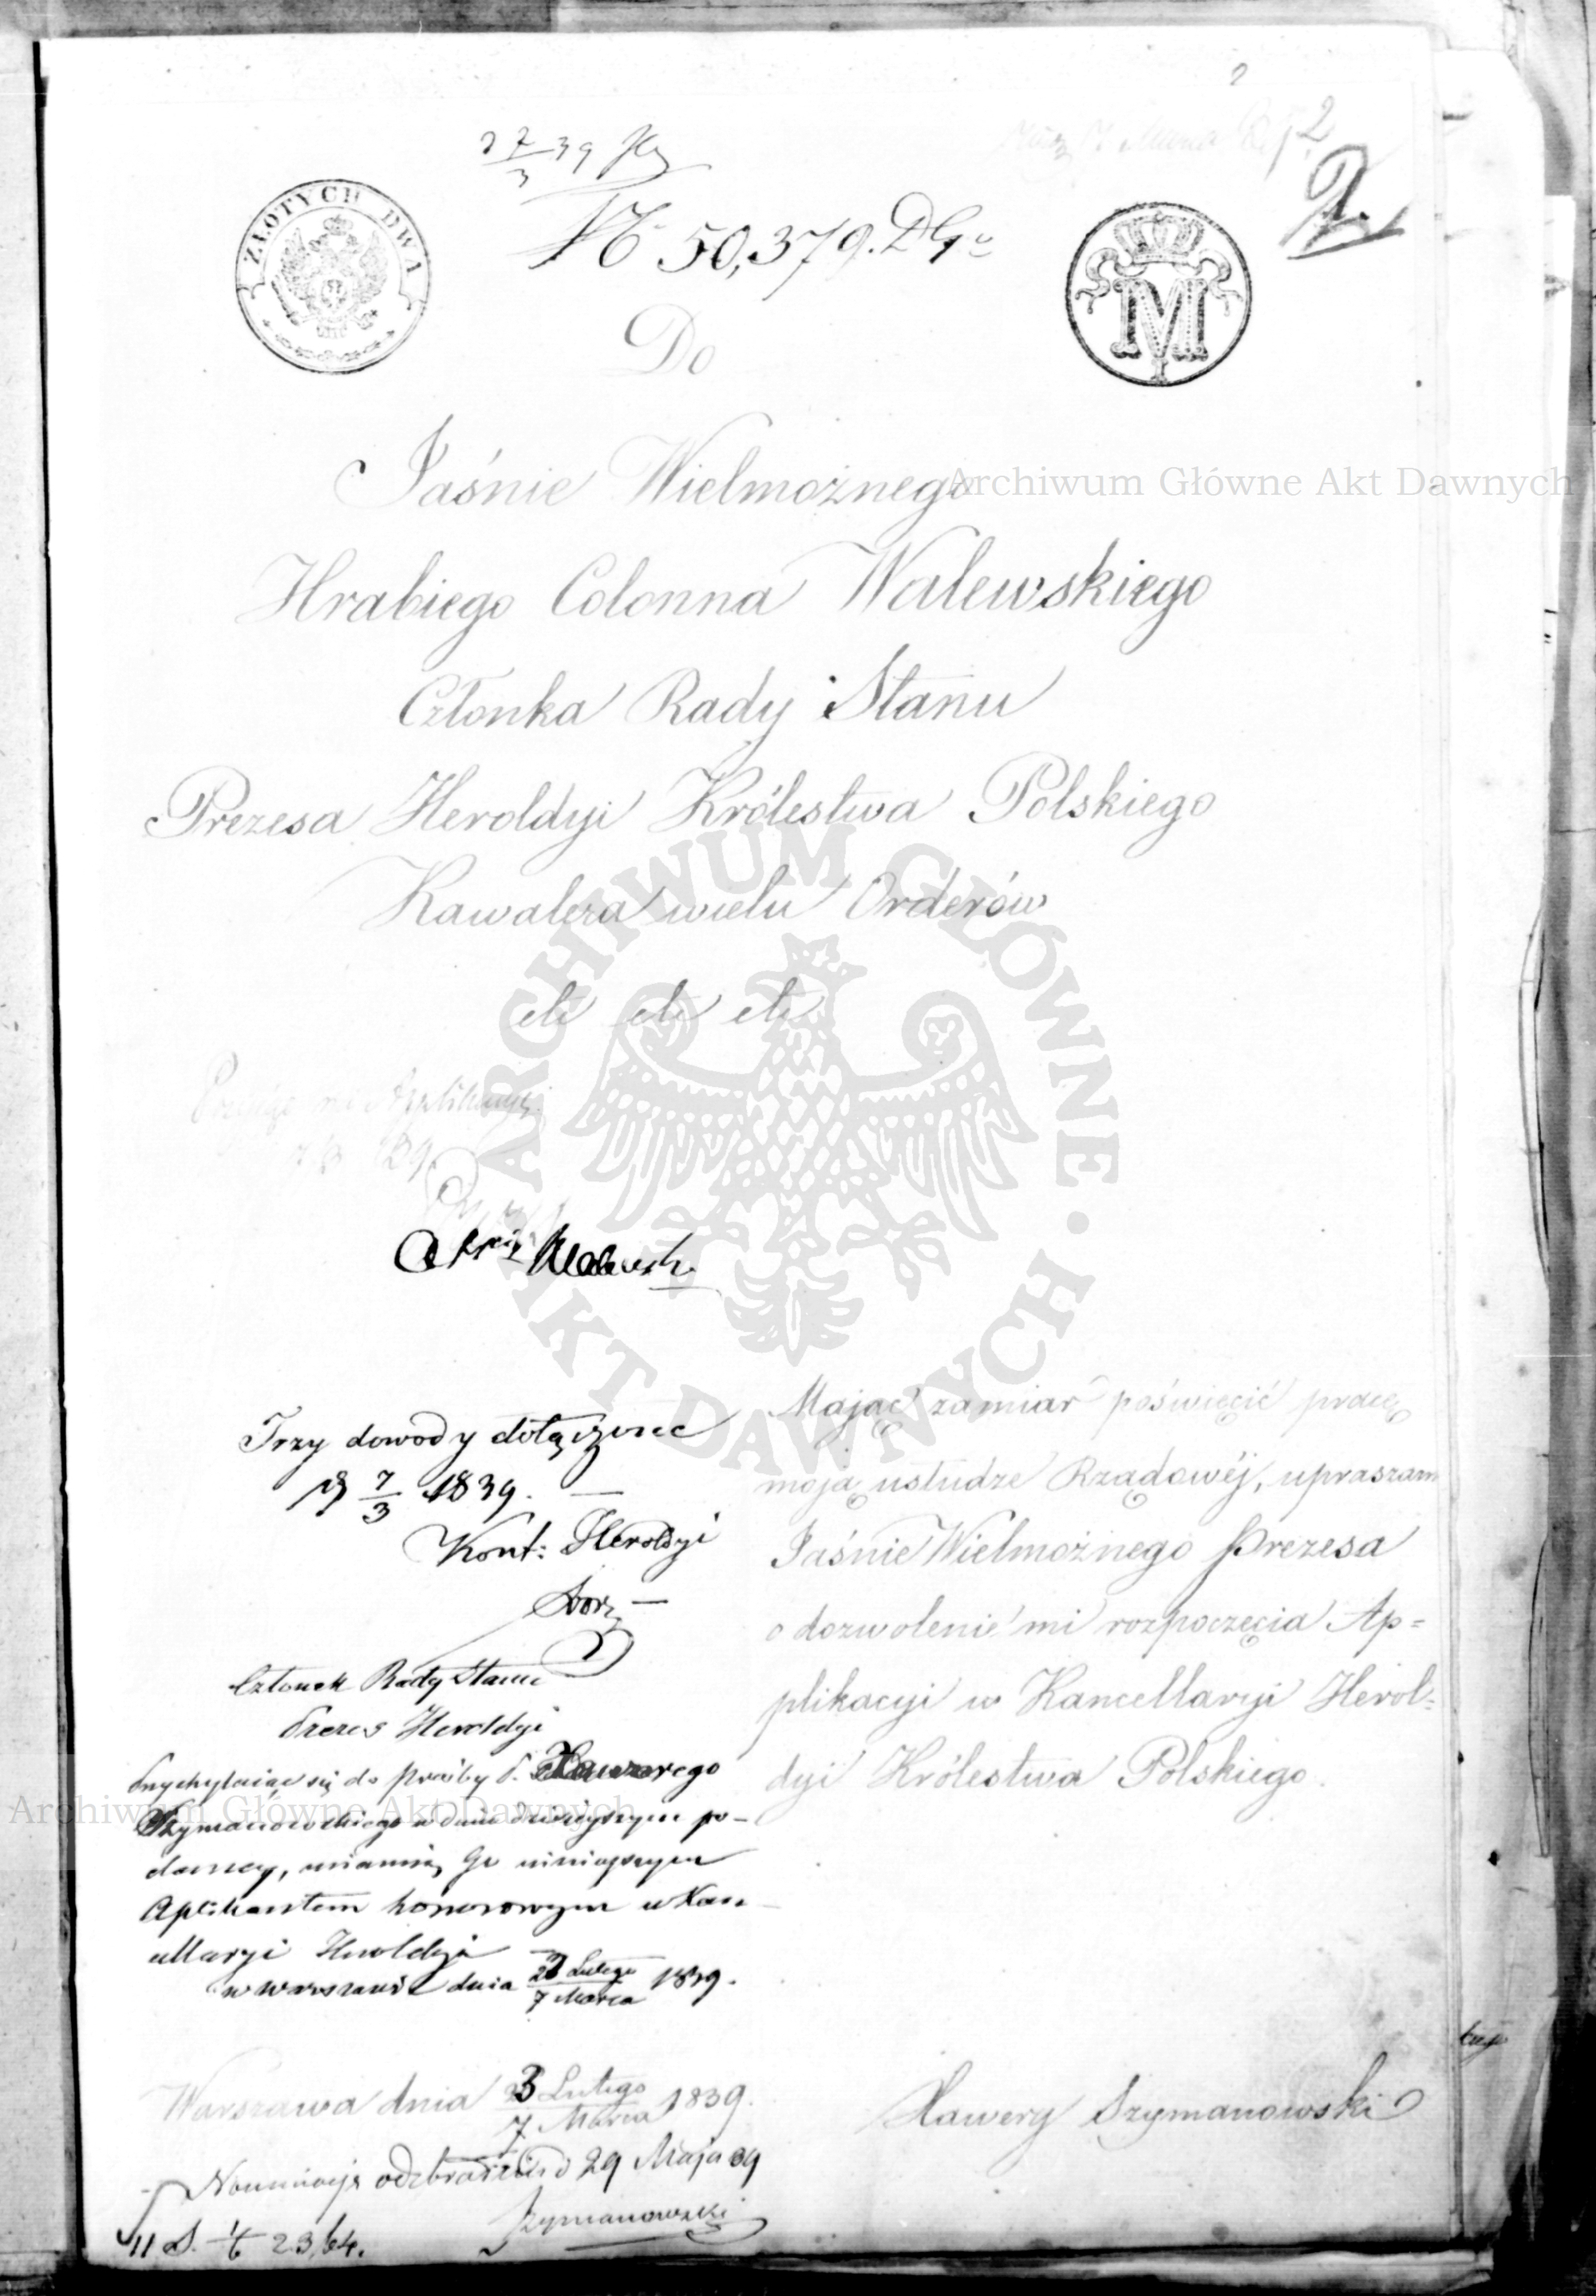 2
7/3 39
2
2.
ZŁOTYCH DWA
№ 50,379. DG
M
I
Do
Jaśnie Wielmożnego
Archiwum Główne Akt Dawnych
Hrabiego Colonna Walewskiego
Członka Rady Stanu
Prezesa Heroldyi Królestwa Polskiego
Kawalera wielu Orderów
etc etc etc
ARCHIWUM GŁÓWNE AKT DAWNYCH
na Applikacyi
39
Trzy dowody dołączone
d 7/3 1839. —
Kont: Heroldyi
Członek Rady Stanu
Prezes Heroldyi
Przychylaiąc się do prośby P. Xawerego
Archiwum Główne Akt Dawnych
Szymanowskiego w dniu dzisieyszym po-
daney, mianuię Go ninieyszym
Aplikantem honorowym w Kan-
cellaryi Heroldyi —
w Warszawie dnia 23 Lutego / 7 Marca 1839.
Mając zamiar poświęcić pracę
moją usłudze Rządowéj, upraszam
Jaśnie Wielmożnego Prezesa
o dozwolenie mi rozpoczęcia Ap=
plikacyi w Kancellaryi Herol=
dyi Królestwa Polskiego.
Warszawa dnia 23 Lutego / 7 Marca 1839.
Xawery Szymanowski
Nominacye odebrałem d 29 Maja 39
Szymanowski